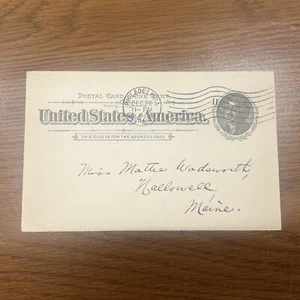 POSTAL CARD ONE CENT.
PHILADELPHIA
DEC 28
11-PM
United States of America.
THIS SIDE IS FOR THE ADDRESS ONLY.
Miss Mattie Wadsworth,
Hallowell,
Maine.